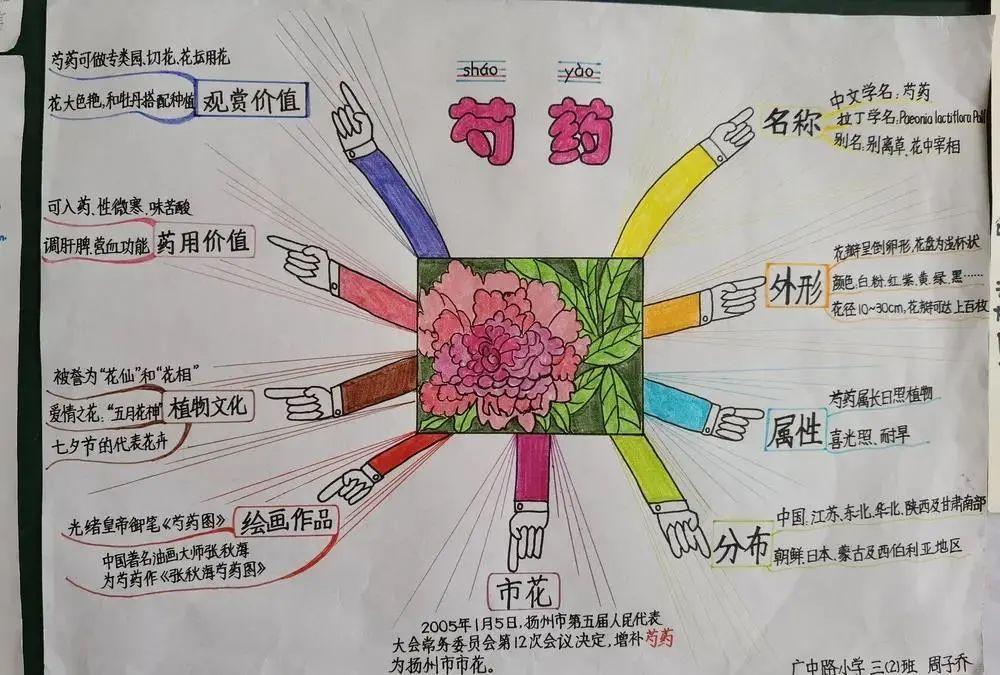 sháo yào
芍药
观赏价值
芍药可做专类园、切花、花坛用花
花大色艳,和牡丹搭配种植
药用价值
可入药、性微寒、味苦酸
调肝脾、营血功能
植物文化
被誉为“花仙”和“花相”
爱情之花:“五月花神”
七夕节的代表花卉
绘画作品
光绪皇帝御笔《芍药图》
中国著名油画大师张秋海
为芍药作《张秋海芍药图》
市花
2005年1月5日,扬州市第五届人民代表
大会常务委员会第12次会议决定,增补芍药
为扬州市市花。
名称
中文学名:芍药
拉丁学名:Paeonia lactiflora Pall
别名:别离草、花中宰相
外形
花瓣呈倒卵形,花盘为浅杯状
颜色:白、粉、红、紫、黄、绿、黑……
花径10~30cm,花瓣可达上百枚
属性
芍药属长日照植物
喜光照、耐旱
分布
中国:江苏、东北、华北、陕西及甘肃南部
朝鲜、日本、蒙古及西伯利亚地区
广中路小学 三(2)班 周子乔